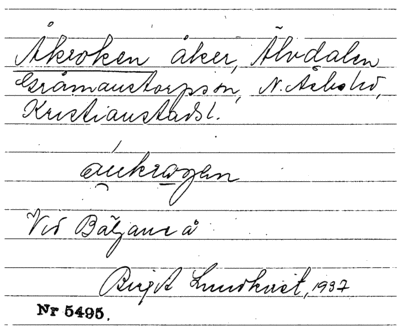 Åkroken åker, Älvdalen
Gråmanstorpssn, N. Åsbohd,
Kristianstadsl.
åukrogen
Vid Bäljane å
Birgit Lundkvist, 1937
Nr 5495.